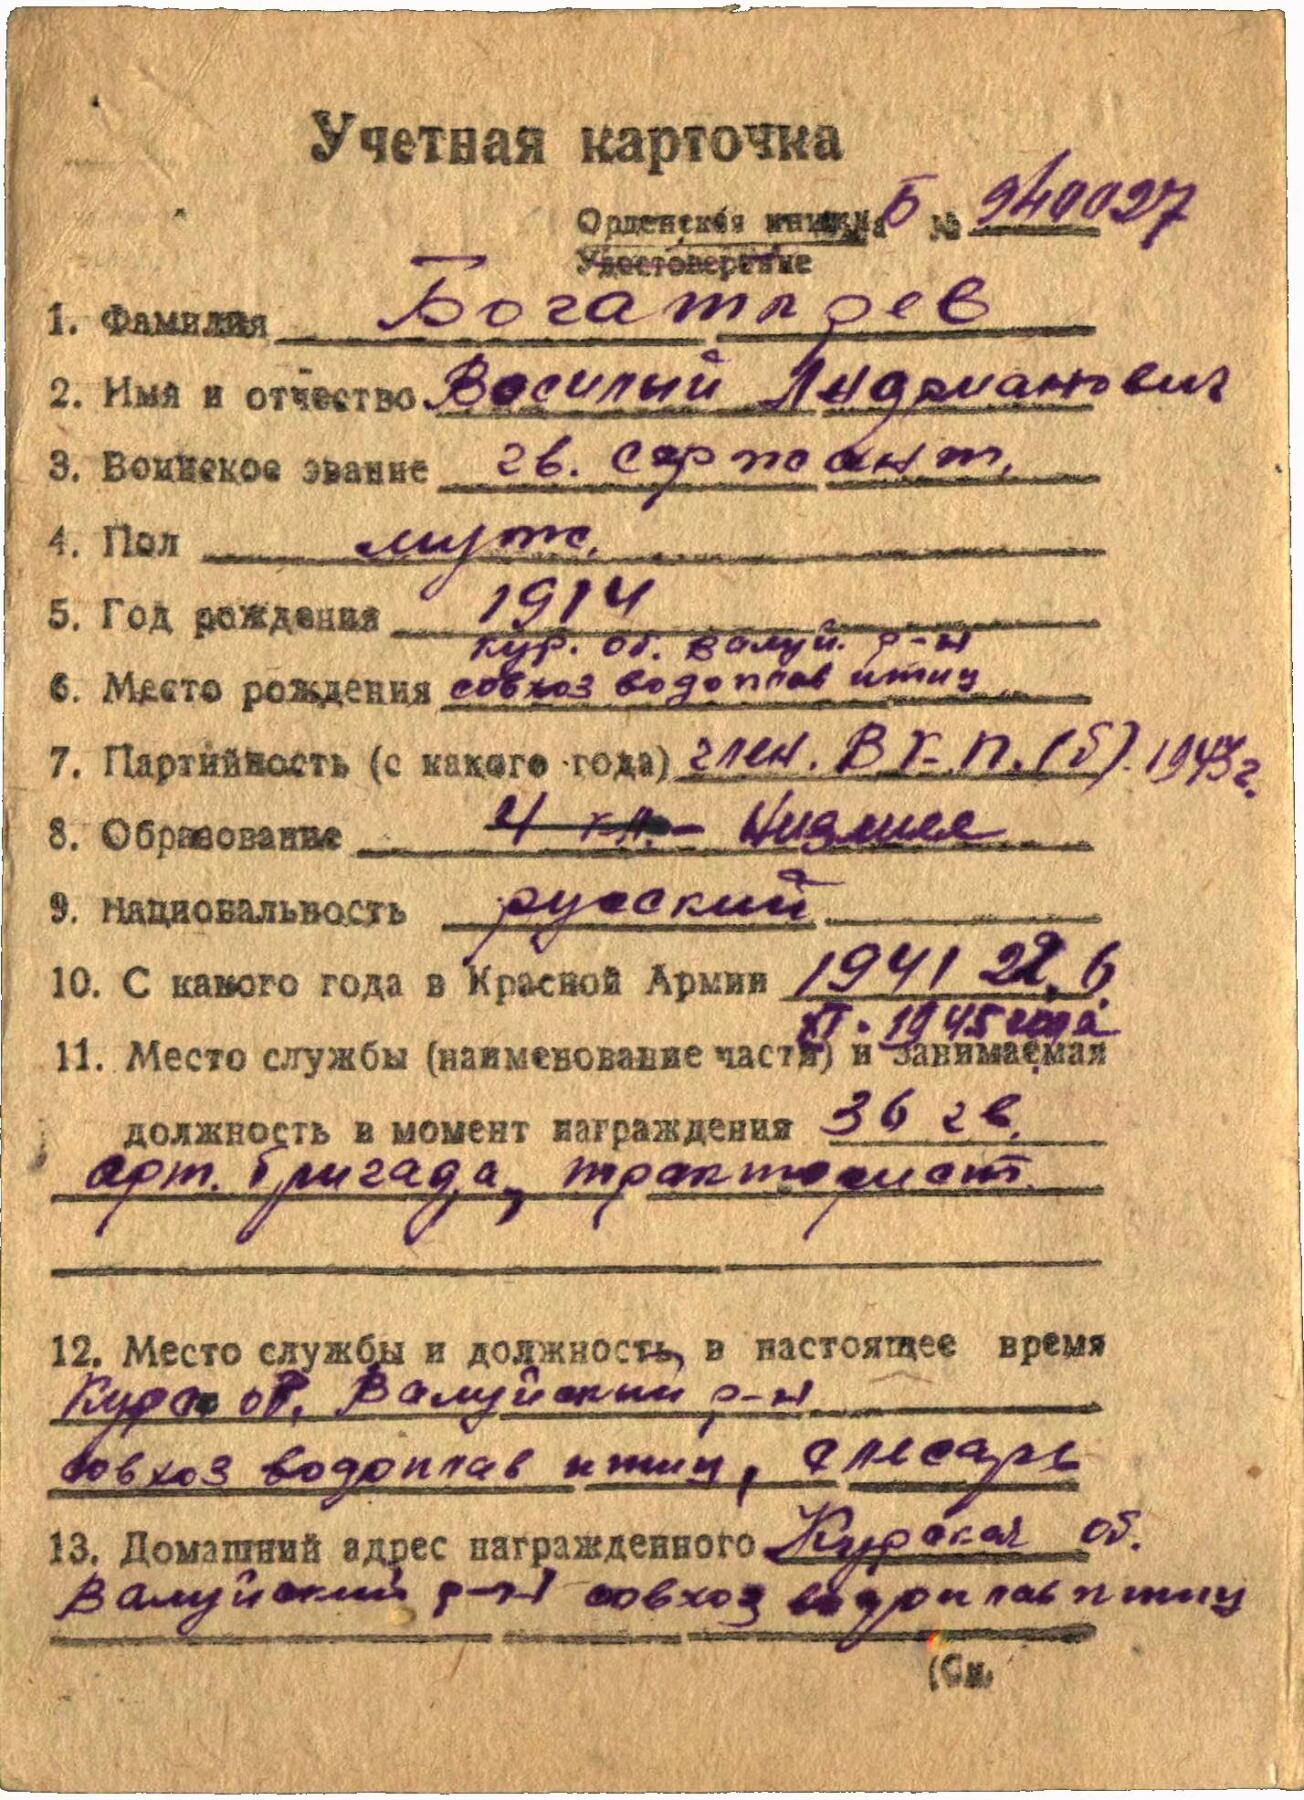 Учетная карточка
Орденская книжка Б № 940027
Удостоверение
1. Фамилия Богатырев
2. Имя и отчество Василий
3. Воинское звание гв. сержант.
4. Пол муж.
5. Год рождения 1914
кур. об. Валуй. р-н
6. Место рождения совхоз водоплав птиц
7. Партийность (с какого года) член. В.К.П.(б). 1943 г.
8. Образование 4 кл. - Низшее
9. Национальность русский
10. С какого года в Красной Армии 1941 22.6
XI. 1945 года
11. Место службы (наименование части) и занимаемая
должность в момент награждения 36 гв.
арт. бригада, тракторист.
12. Место службы и должность, в настоящее время
Курс об. Валуйский р-н
совхоз водоплав птиц, слесарь
13. Домашний адрес награжденного Курская об.
Валуйский р-н совхоз водоплав птиц
(См.